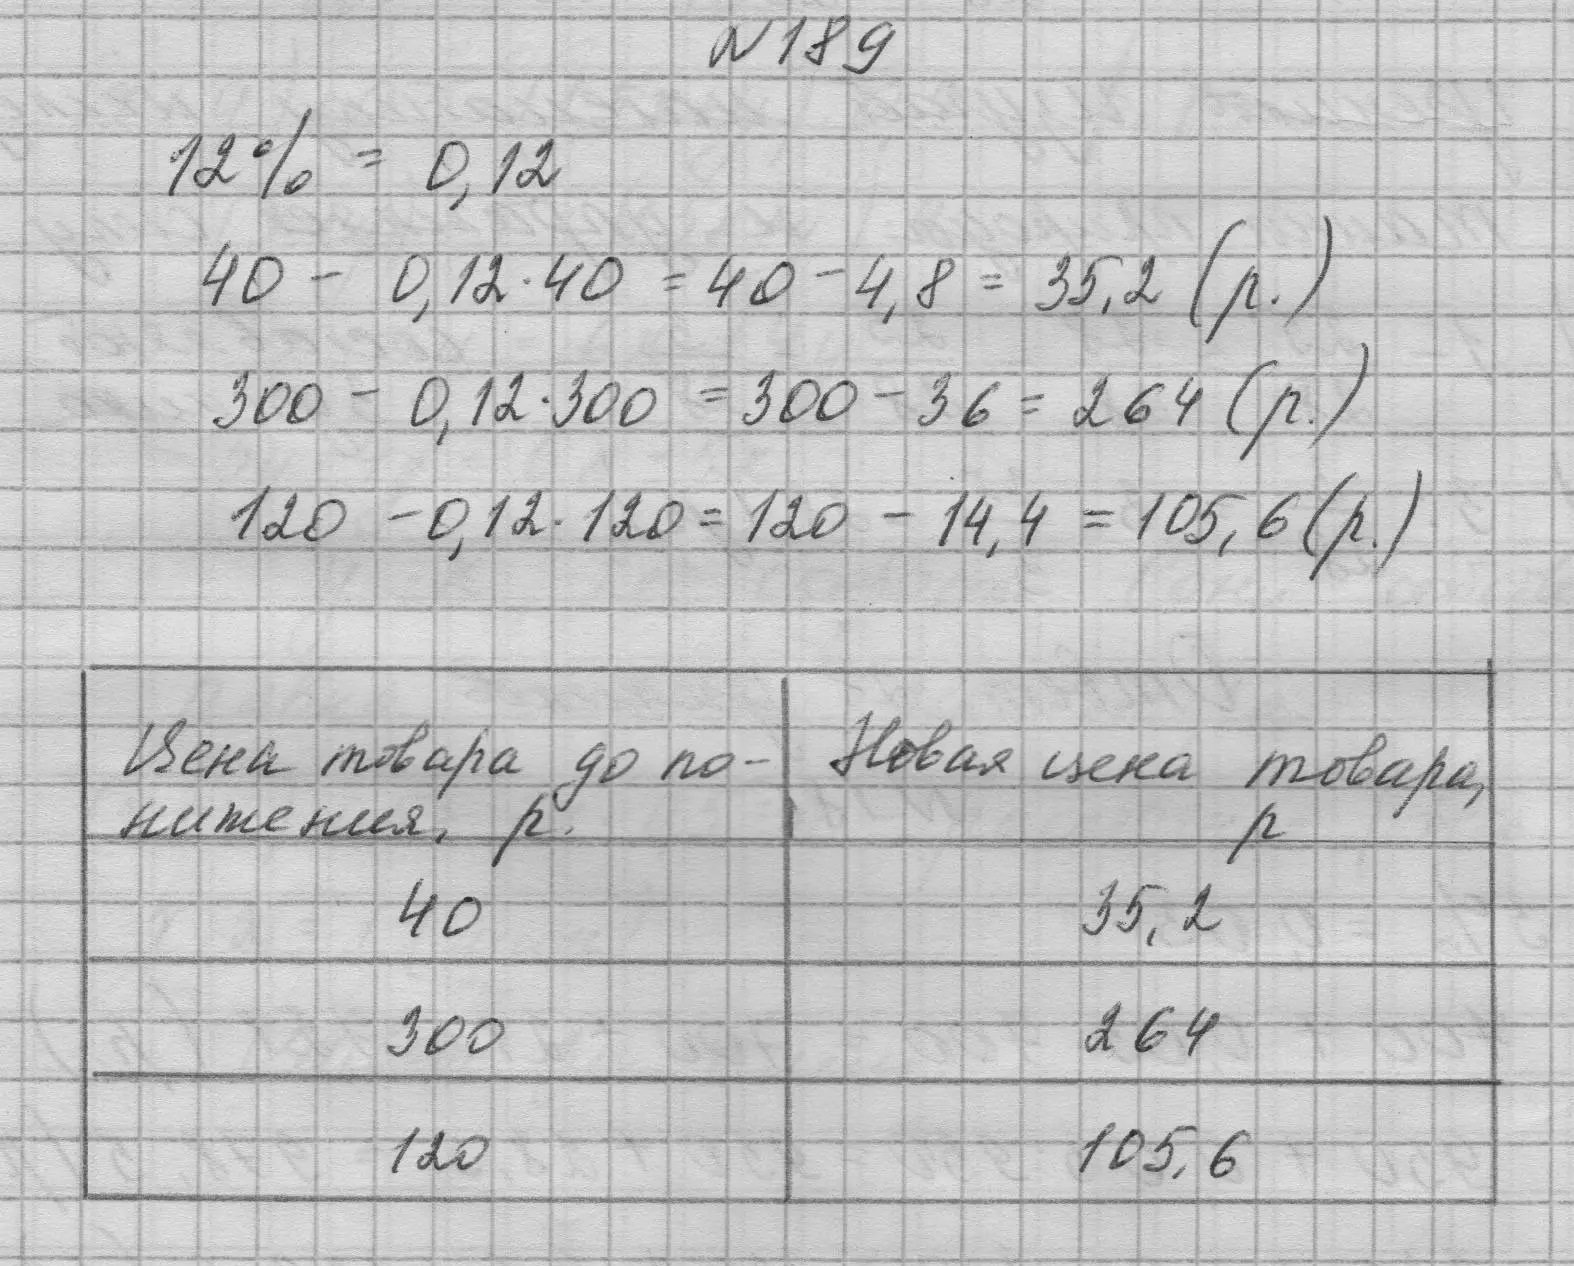 №189
12% = 0,12
40 - 0,12·40 = 40 - 4,8 = 35,2 (р.)
300 - 0,12·300 = 300 - 36 = 264 (р.)
120 - 0,12·120 = 120 - 14,4 = 105,6 (р.)
Цена товара до по- Новая цена товара,
нижения, р. р
40 35,2
300 264
120 105,6